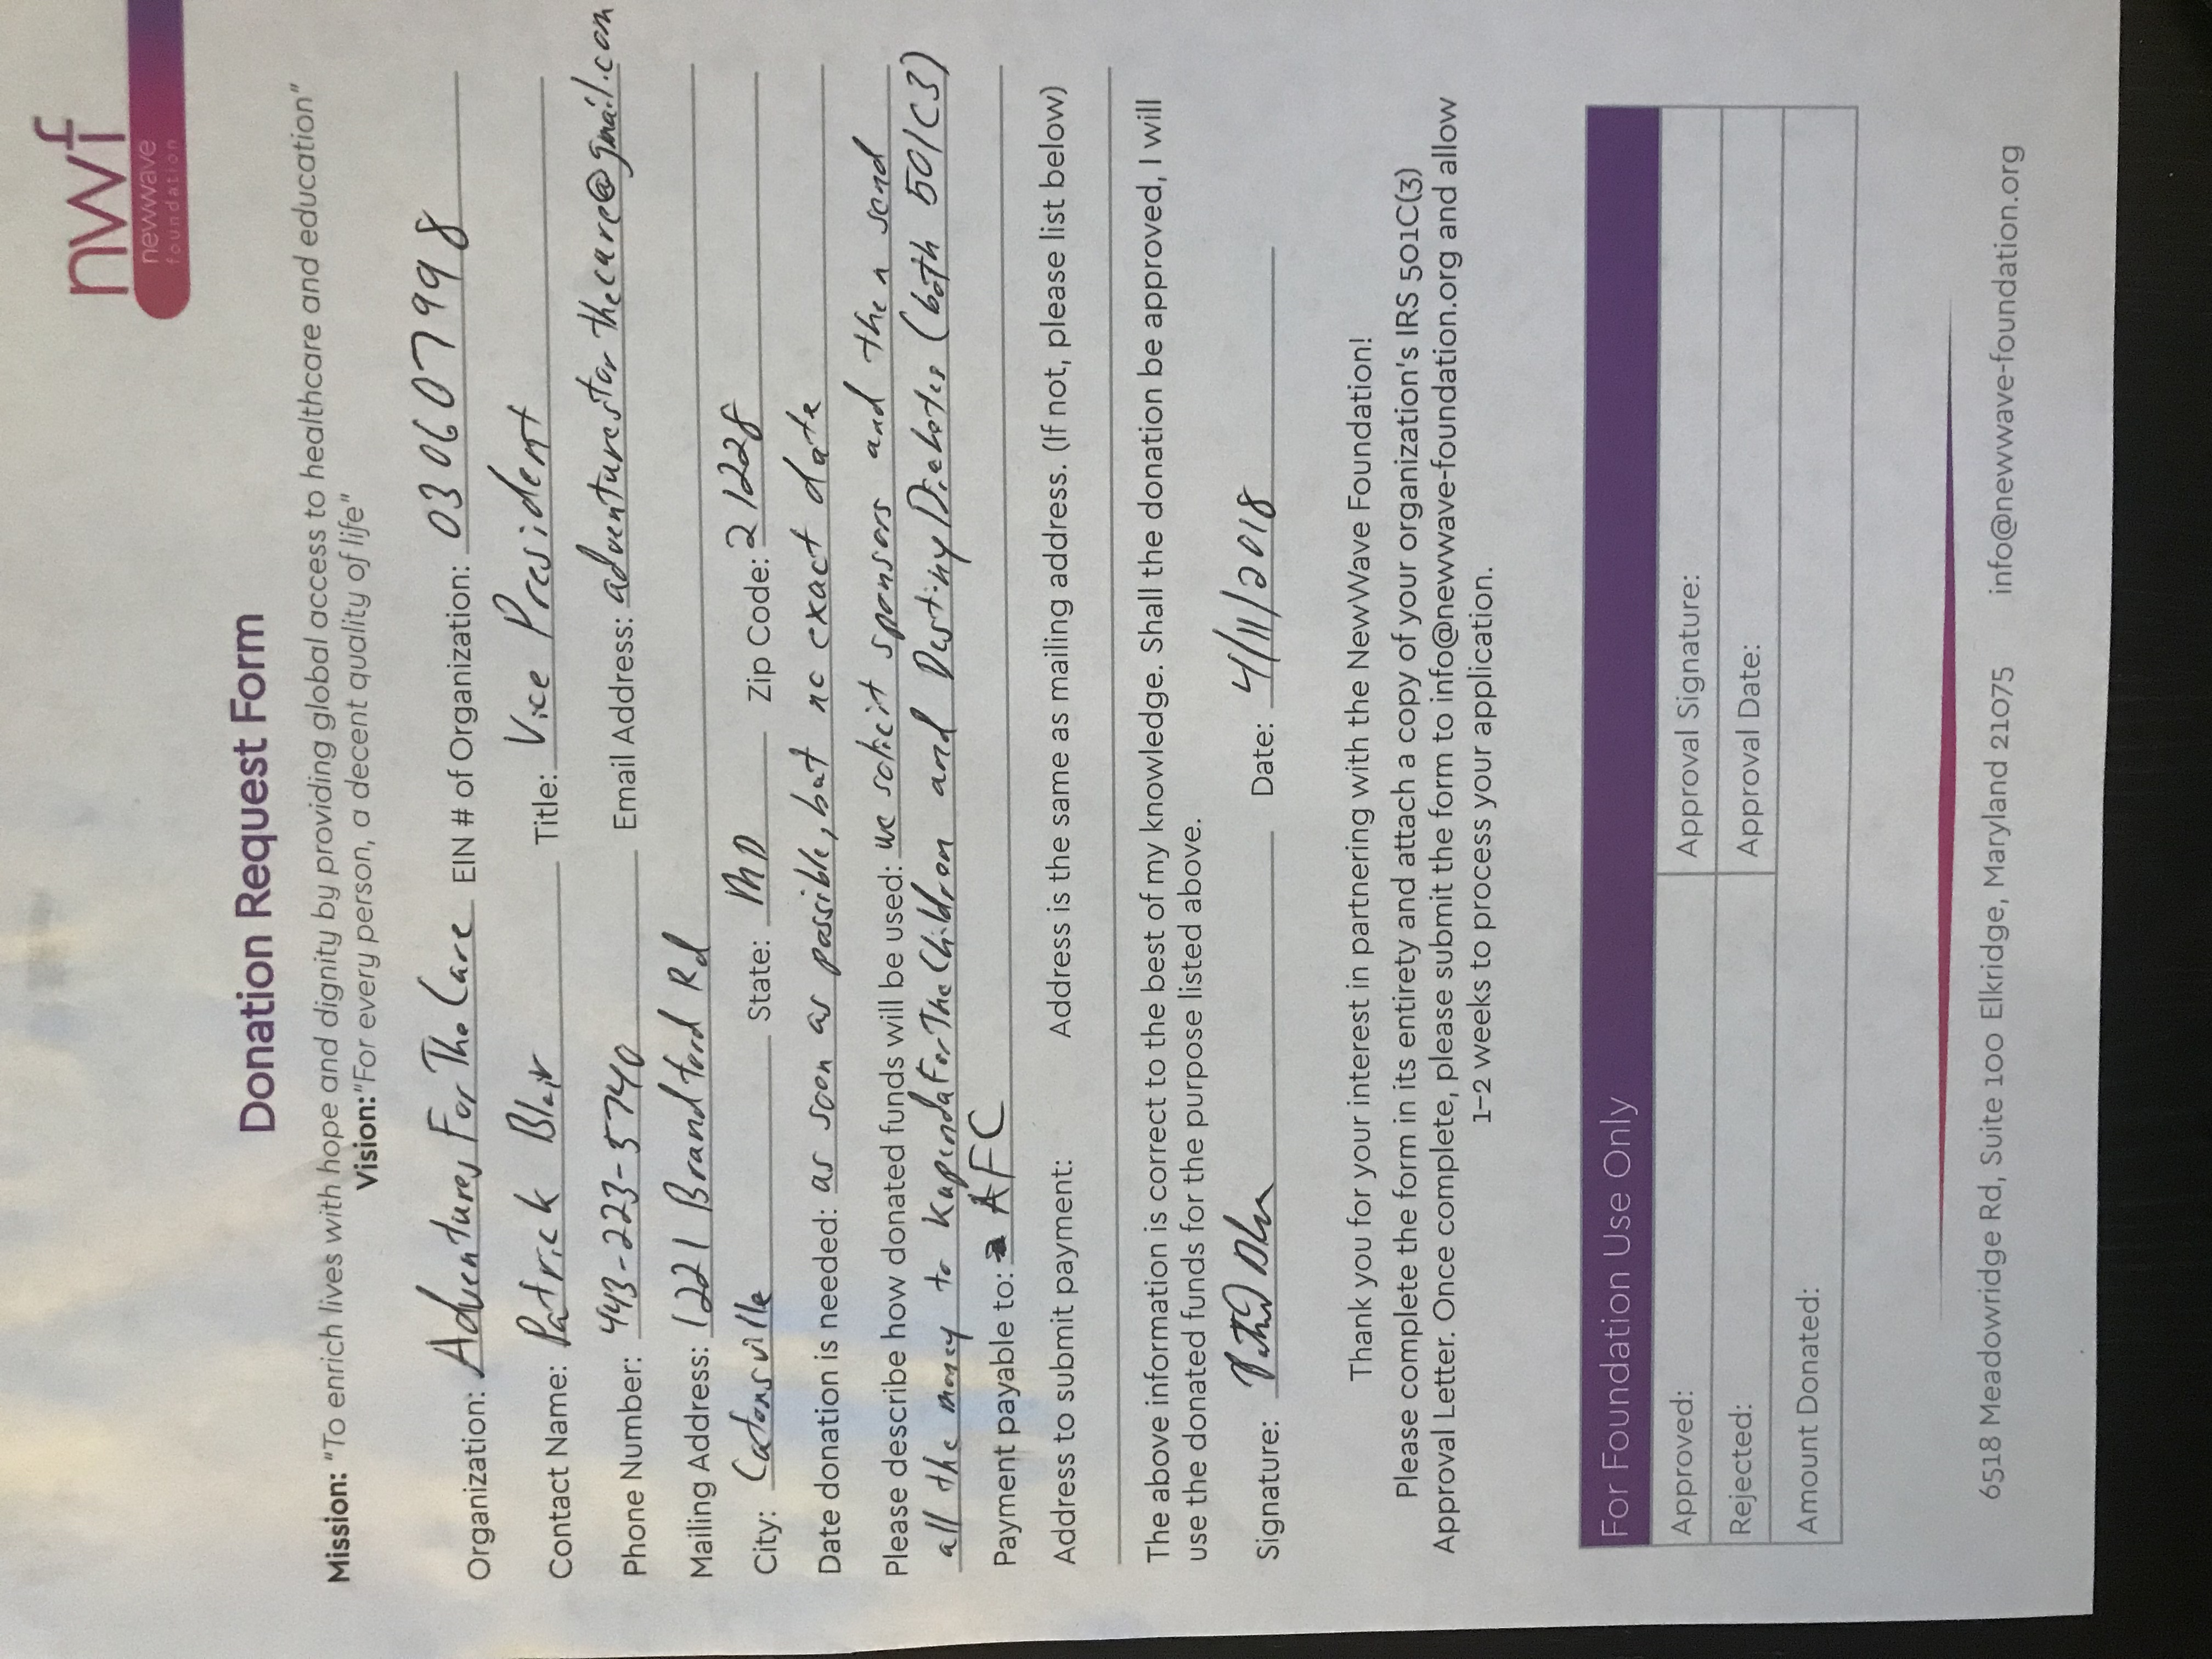 nwf
newwave
foundation
Donation Request Form
Mission: "To enrich lives with hope and dignity by providing global access to healthcare and education"
Vision:"For every person, a decent quality of life"
Organization: Adventures For The Care EIN # of Organization: 030607998
Contact Name: Patrick Blair Title: Vice President
Phone Number: 443-223-5740 Email Address: adventuresforthecare@gmail.com
Mailing Address: 1221 Brandford Rd
City: Catonsville State: MD Zip Code: 21228
Date donation is needed: as soon as possible, but no exact date
Please describe how donated funds will be used: we solicit sponsors and then send
all the money to KapendaForTheChildren and DestinyDiabetes (both 501C3)
Payment payable to: AFC
Address to submit payment: Address is the same as mailing address. (If not, please list below)
The above information is correct to the best of my knowledge. Shall the donation be approved, I will
use the donated funds for the purpose listed above.
Signature: Date: 4/11/2018
Thank you for your interest in partnering with the NewWave Foundation!
Please complete the form in its entirety and attach a copy of your organization's IRS 501C(3)
Approval Letter. Once complete, please submit the form to info@newwave-foundation.org and allow
1-2 weeks to process your application.
For Foundation Use Only
Approved: Approval Signature:
Rejected: Approval Date:
Amount Donated:
6518 Meadowridge Rd, Suite 100 Elkridge, Maryland 21075 info@newwave-foundation.org